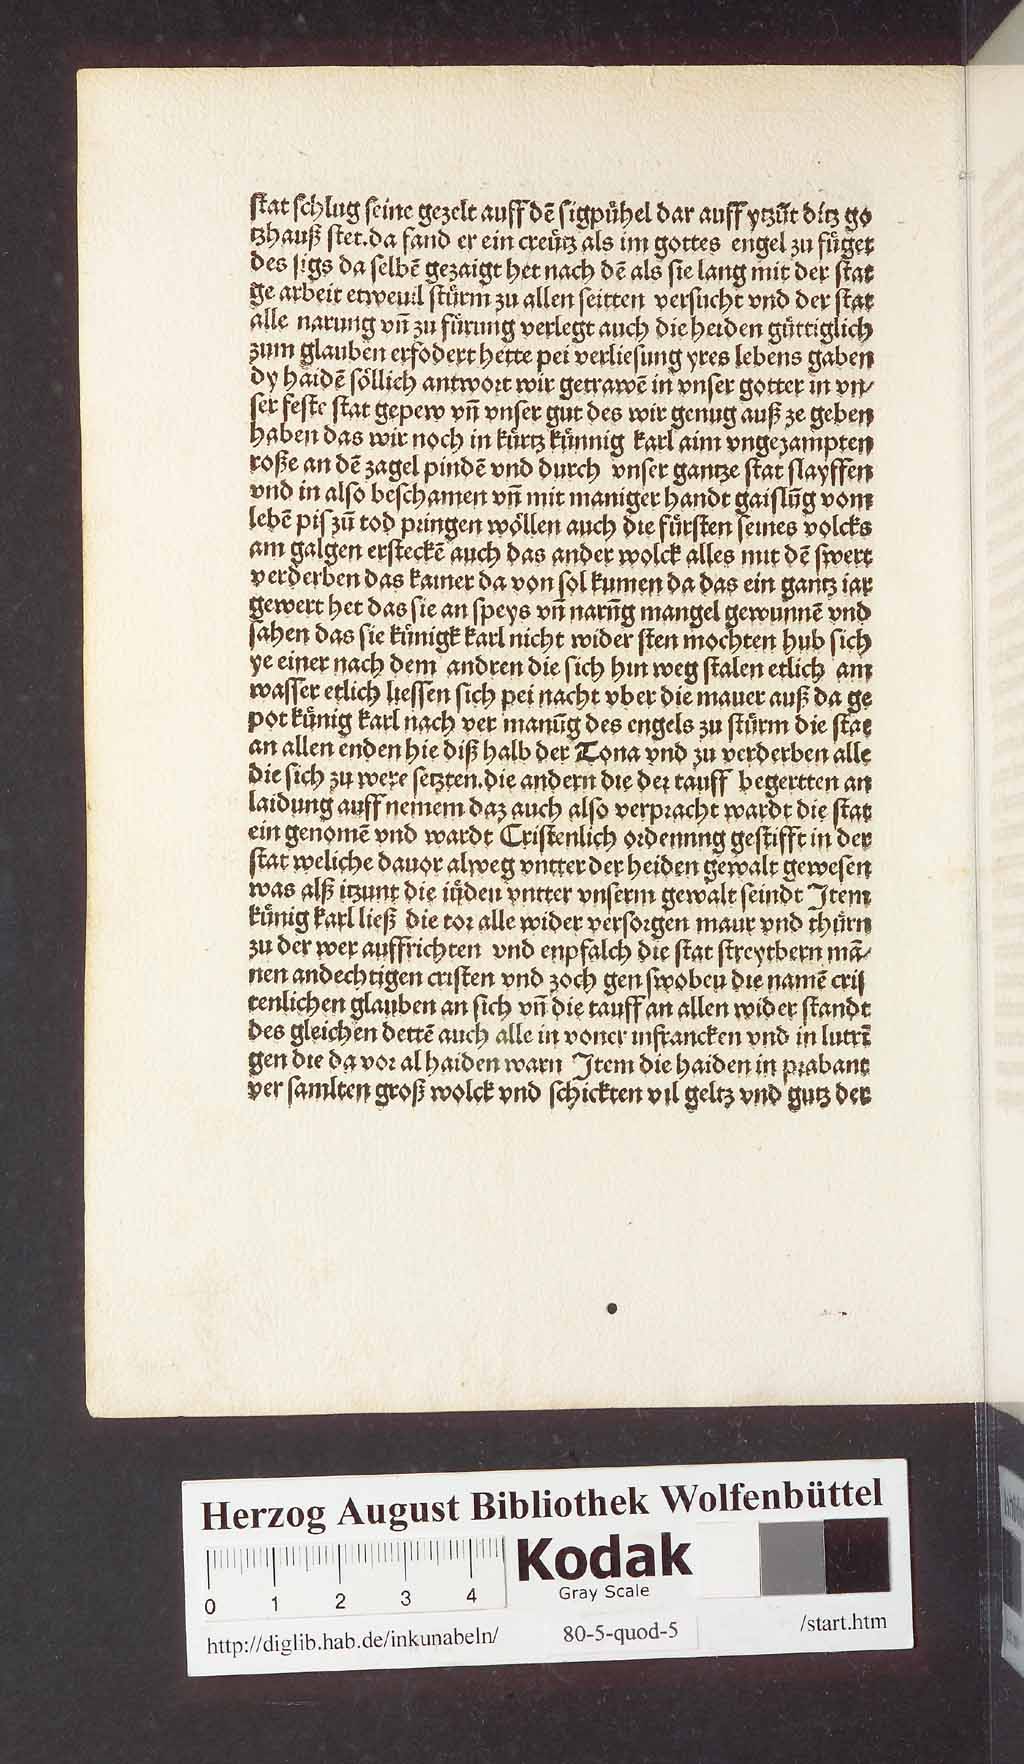 stat schlug seine gezelt auff dē sigpühel dar auff ytzūt ditz go
tzhauß stet. da fand er ein creütz als im gottes engel zu füget
des sigs da selbē gezaigt het nach dē als sie lang mit der stat
ge arbeit etweuil stürm zu allen seitten versucht vnd der stat
alle narung vñ zu fürung verlegt auch die heiden güttiglich
zum glauben erfodert hette pei verliesung yres lebens gaben
dy haidē söllich antwort wir getrawē in vnser gotter in vn/
ser feste stat gepew vñ vnser gut des wir genug auß ze geben
haben das wir noch in kürtz künnig karl aim vngezampten
roße an dē zagel pindē vnd durch vnser gantze stat slayffen
vnd in also beschamen vñ mit maniger handt gaislūg vom
lebē pis zū tod pringen wöllen auch die fürsten seines volcks
am galgen ersteckē auch das ander wolck alles mit dē swert
verderben das kainer da von sol kumen da das ein gantz iar
gewert het das sie an speys vñ narūg mangel gewunnē vnd
sahen das sie künigk karl nicht wider sten mochten hub sich
ye einer nach dem andren die sich hin weg stalen etlich am
wasser etlich liessen sich pei nacht vber die mauer auß da ge
pot künig karl nach ver manūg des engels zu stürm die stat
an allen enden hie diß halb der Tona vnd zu verderben alle
die sich zu were setzten. die andern die der tauff begertten an
laidung auff nemem daz auch also verpracht wardt die stat
ein genomē vnd wardt Cristenlich ordenung gestifft in der
stat weliche dauor alweg vntter der heiden gewalt gewesen
was alß itzunt die iüden vntter vnserm gewalt seindt Item
künig karl ließ die tor alle wider versorgen maur vnd thürn
zu der wer auffrichten vnd enpfalch die stat streytbern mā/
nen andechtigen cristen vnd zoch gen swoben die namē cris
tenlichen glauben an sich vñ die tauff an allen wider standt
des gleichen dettē auch alle in voner infrancken vnd in lutrī
gen die da vor al haiden warn Item die haiden in prabant
ver samlten groß wolck vnd schickten vil geltz vnd gutz der
Herzog August Bibliothek Wolfenbüttel
Kodak
Gray Scale
0 1 2 3 4
http://diglib.hab.de/inkunabeln/ 80-5-quod-5 /start.htm